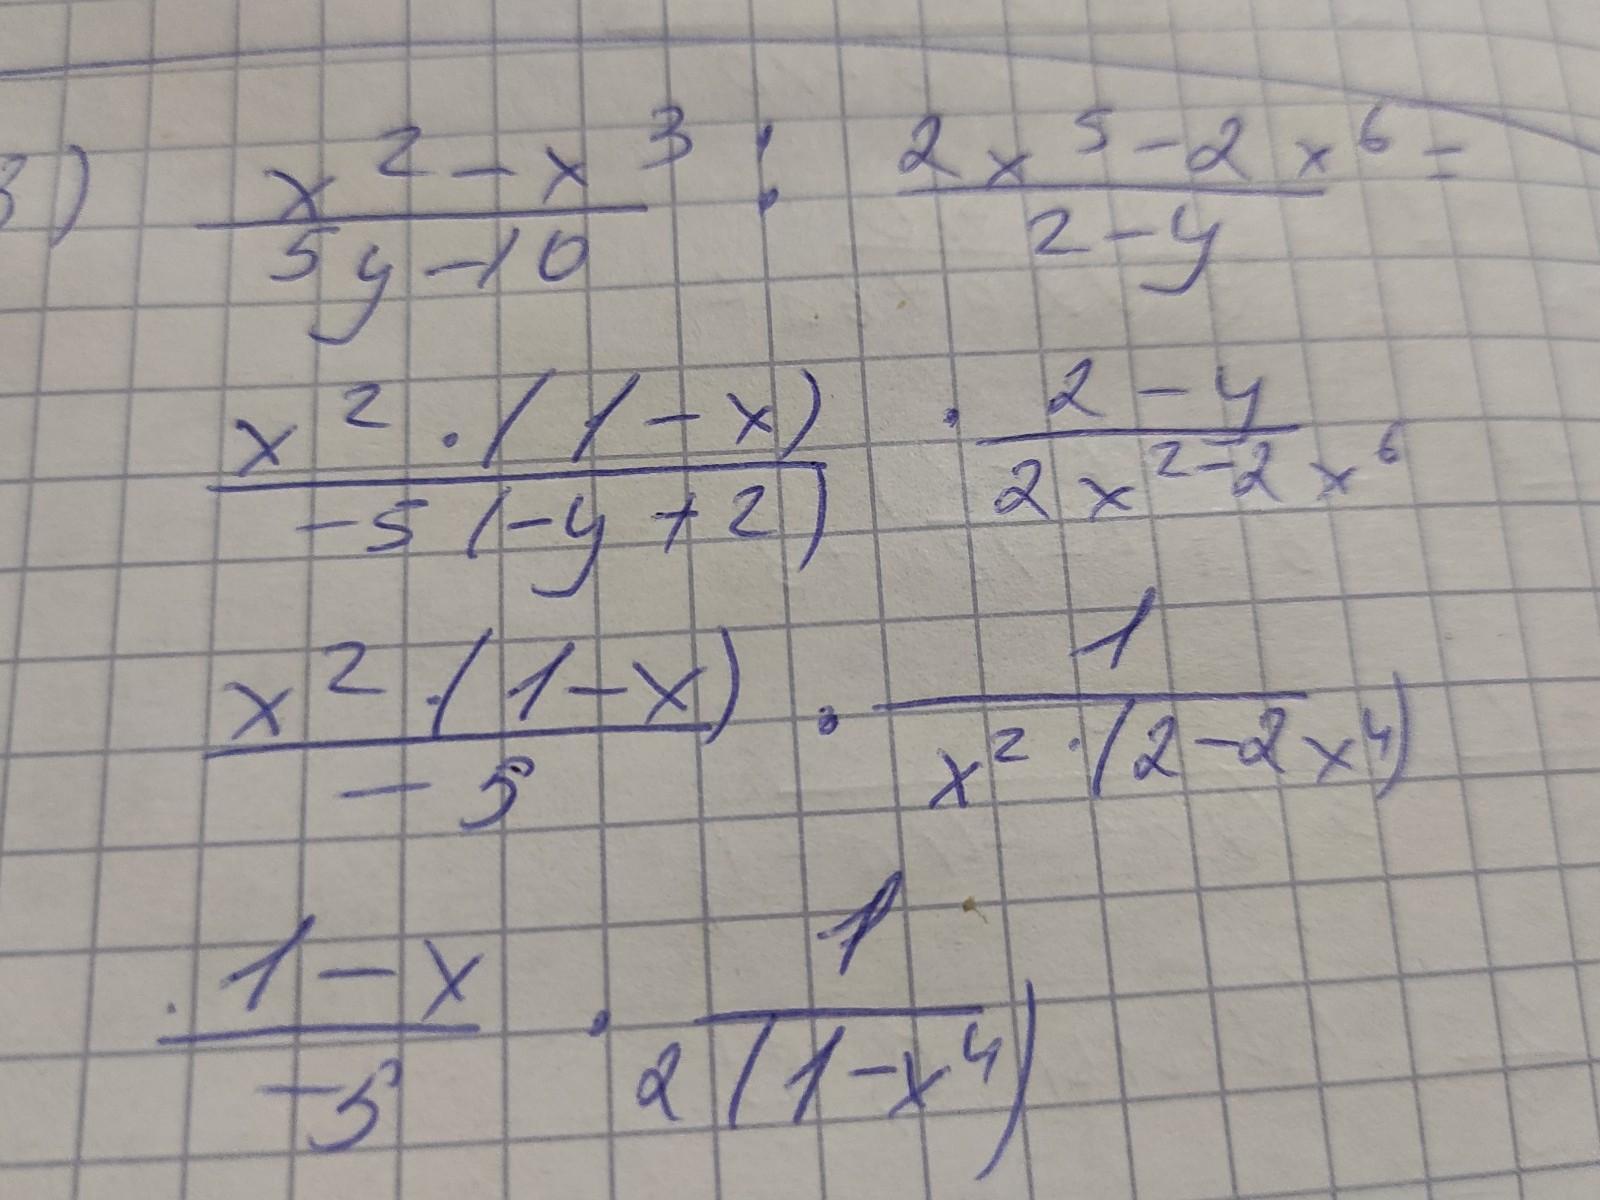 3) (x² - x³)/(5y - 10) : (2x⁵ - 2x⁶)/(2 - y) =
(x² · (1 - x))/(-5(-y + 2)) · (2 - y)/(2x² - 2x⁶)
(x² · (1 - x))/(-5) · 1/(x² · (2 - 2x⁴))
(1 - x)/(-5) · 1/(2(1 - x⁴))